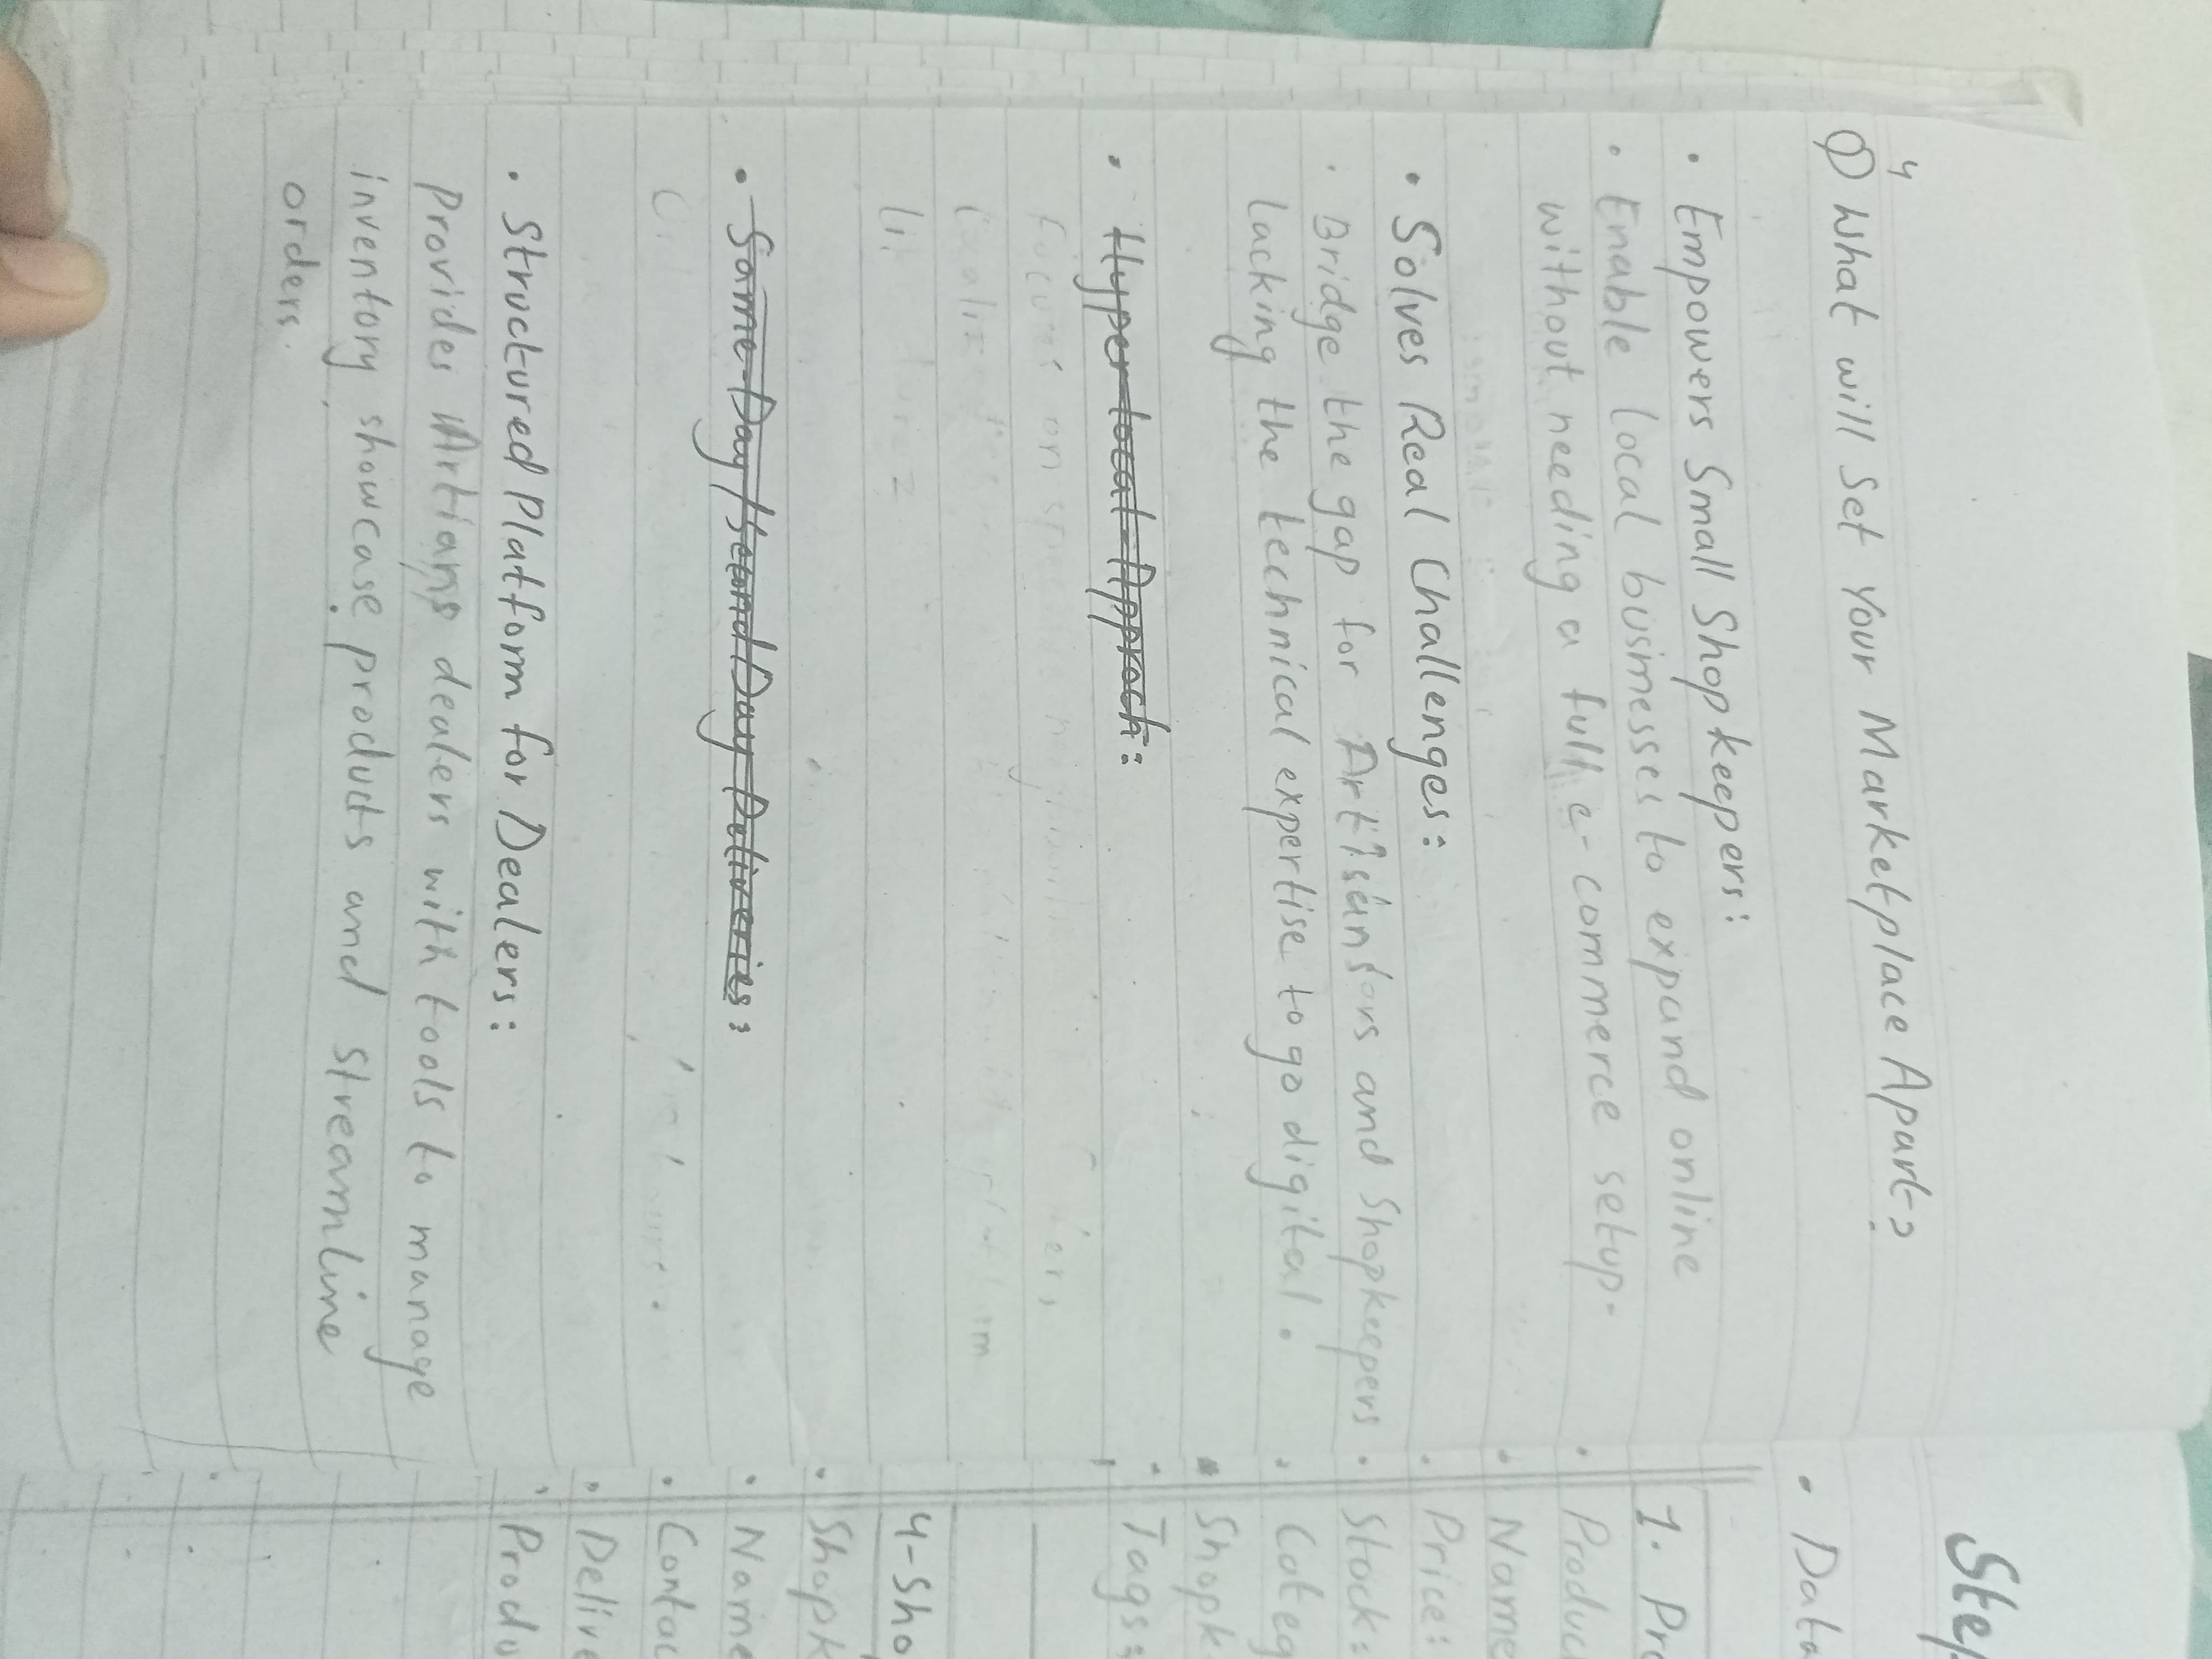 4
Q) What will Set Your Marketplace Apart?
• Empowers Small Shopkeepers:
• Enable local businesses to expand online
without needing a full e-commerce setup.
• Solves Real Challenges:
• Bridge the gap for Artisans and Shopkeepers
lacking the technical expertise to go digital.
• Hyper local Approch:
• Same Day/Second Day Deliveries:
• Structured Platform for Dealers:
Provides Artians dealers with tools to manage
inventory showcase products and Streamline
orders.
Step
• Data
1. Pro
• Produc
• Name
• Price:
• Stock:
• Categ
• Shopk
• Tags:
4-Sho
• Shopk
• Name
• Contac
• Delive
• Produ